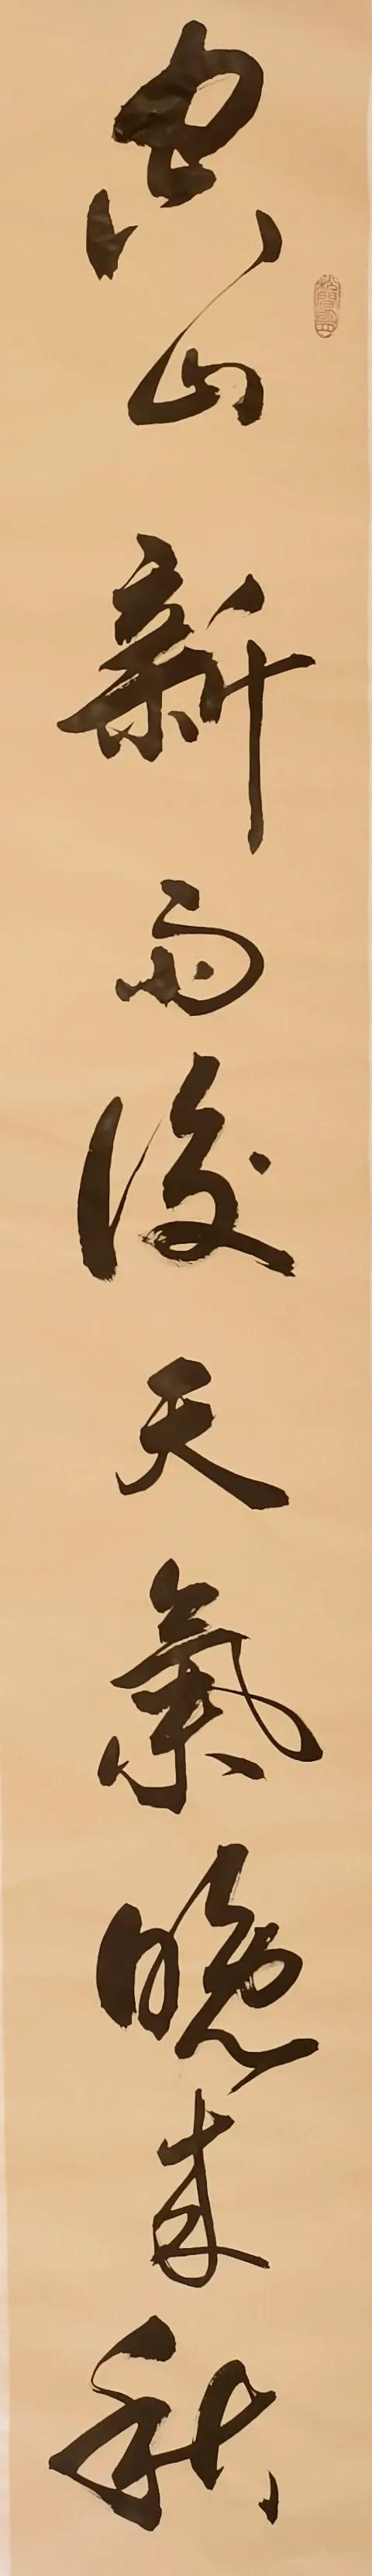 空山新雨後天氣晚来秋